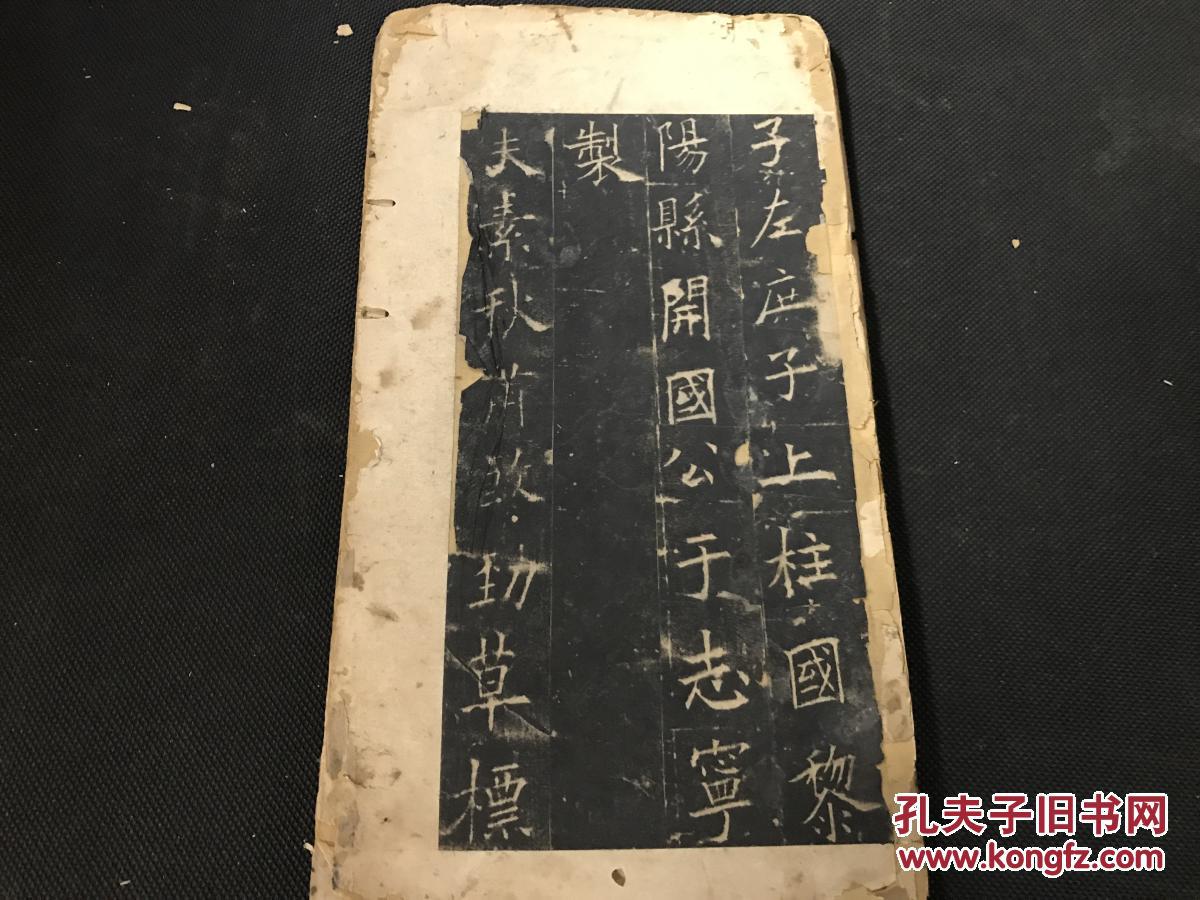 子左庶子上柱國黎
陽縣開國公于志寧
製
夫素秋肅煞勁草標
孔夫子旧书网
www.kongfz.com